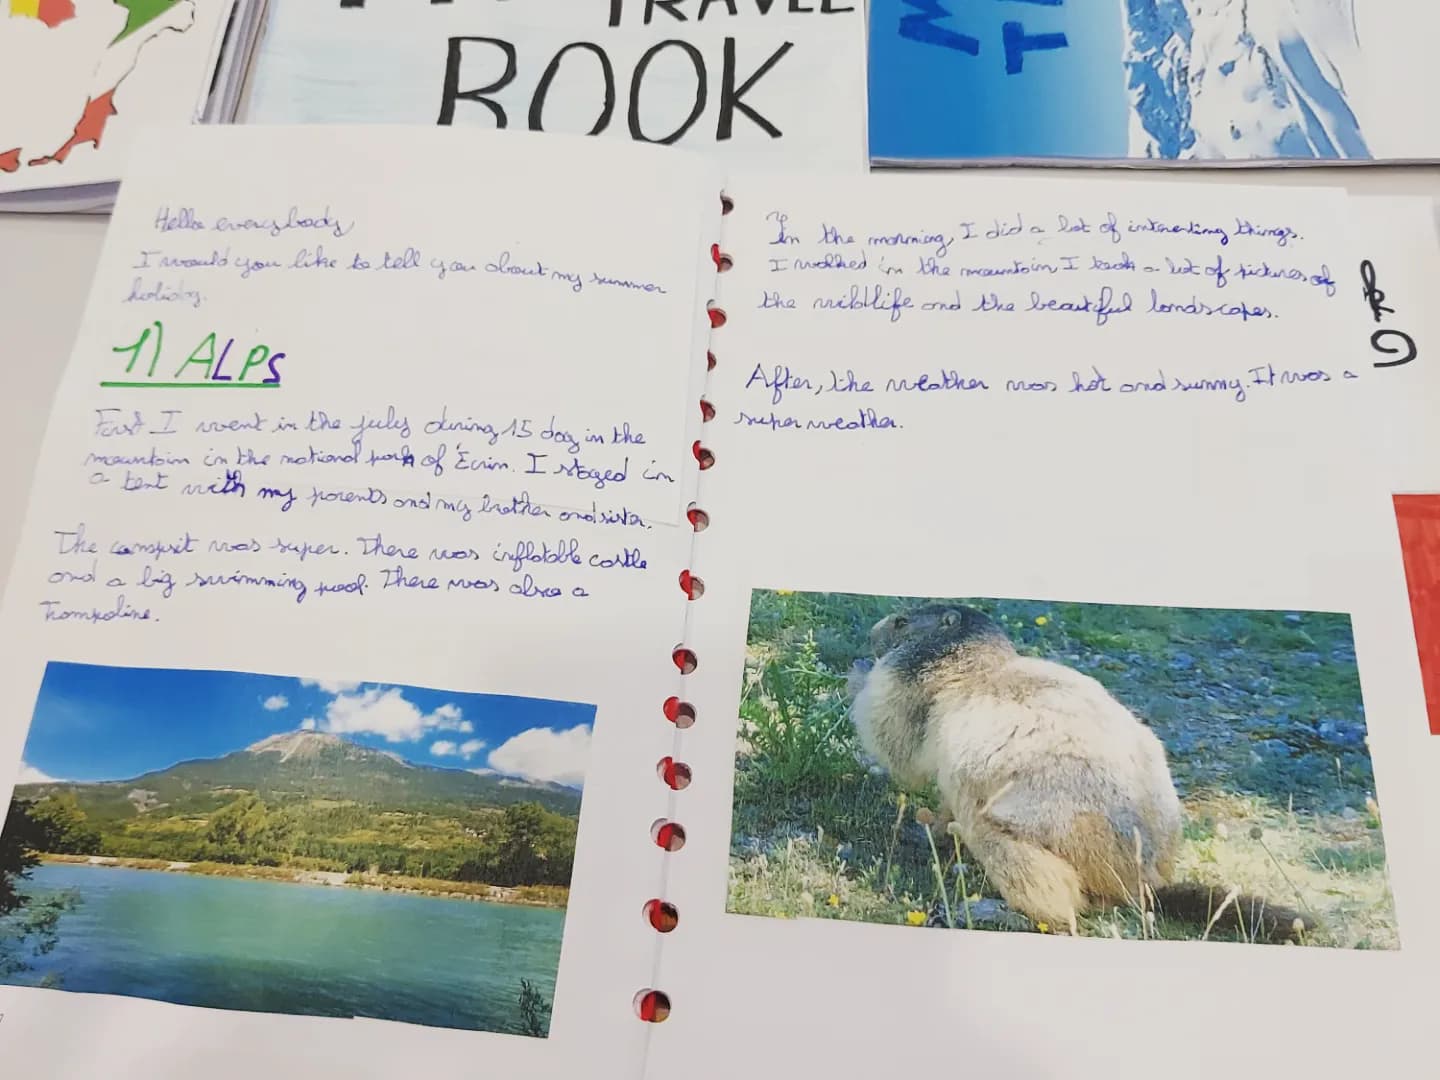 TRAVEL
BOOK
Hello everybody
I would you like to tell you about my summer
holiday.
1) ALPS
First I went in the july during 15 day in the
mountain in the national park of Écrin. I stayed in
a tent with my parents and my brother and sister.
The campsit was super. There was inflatable castle
and a big swimming pool. There was also a
Trampoline.
In the morning, I did a lot of interesting things.
I walked in the mountain, I took a lot of pictures of
the wildlife and the beautiful landscapes.
After, the weather was hot and sunny. It was a
super weather.